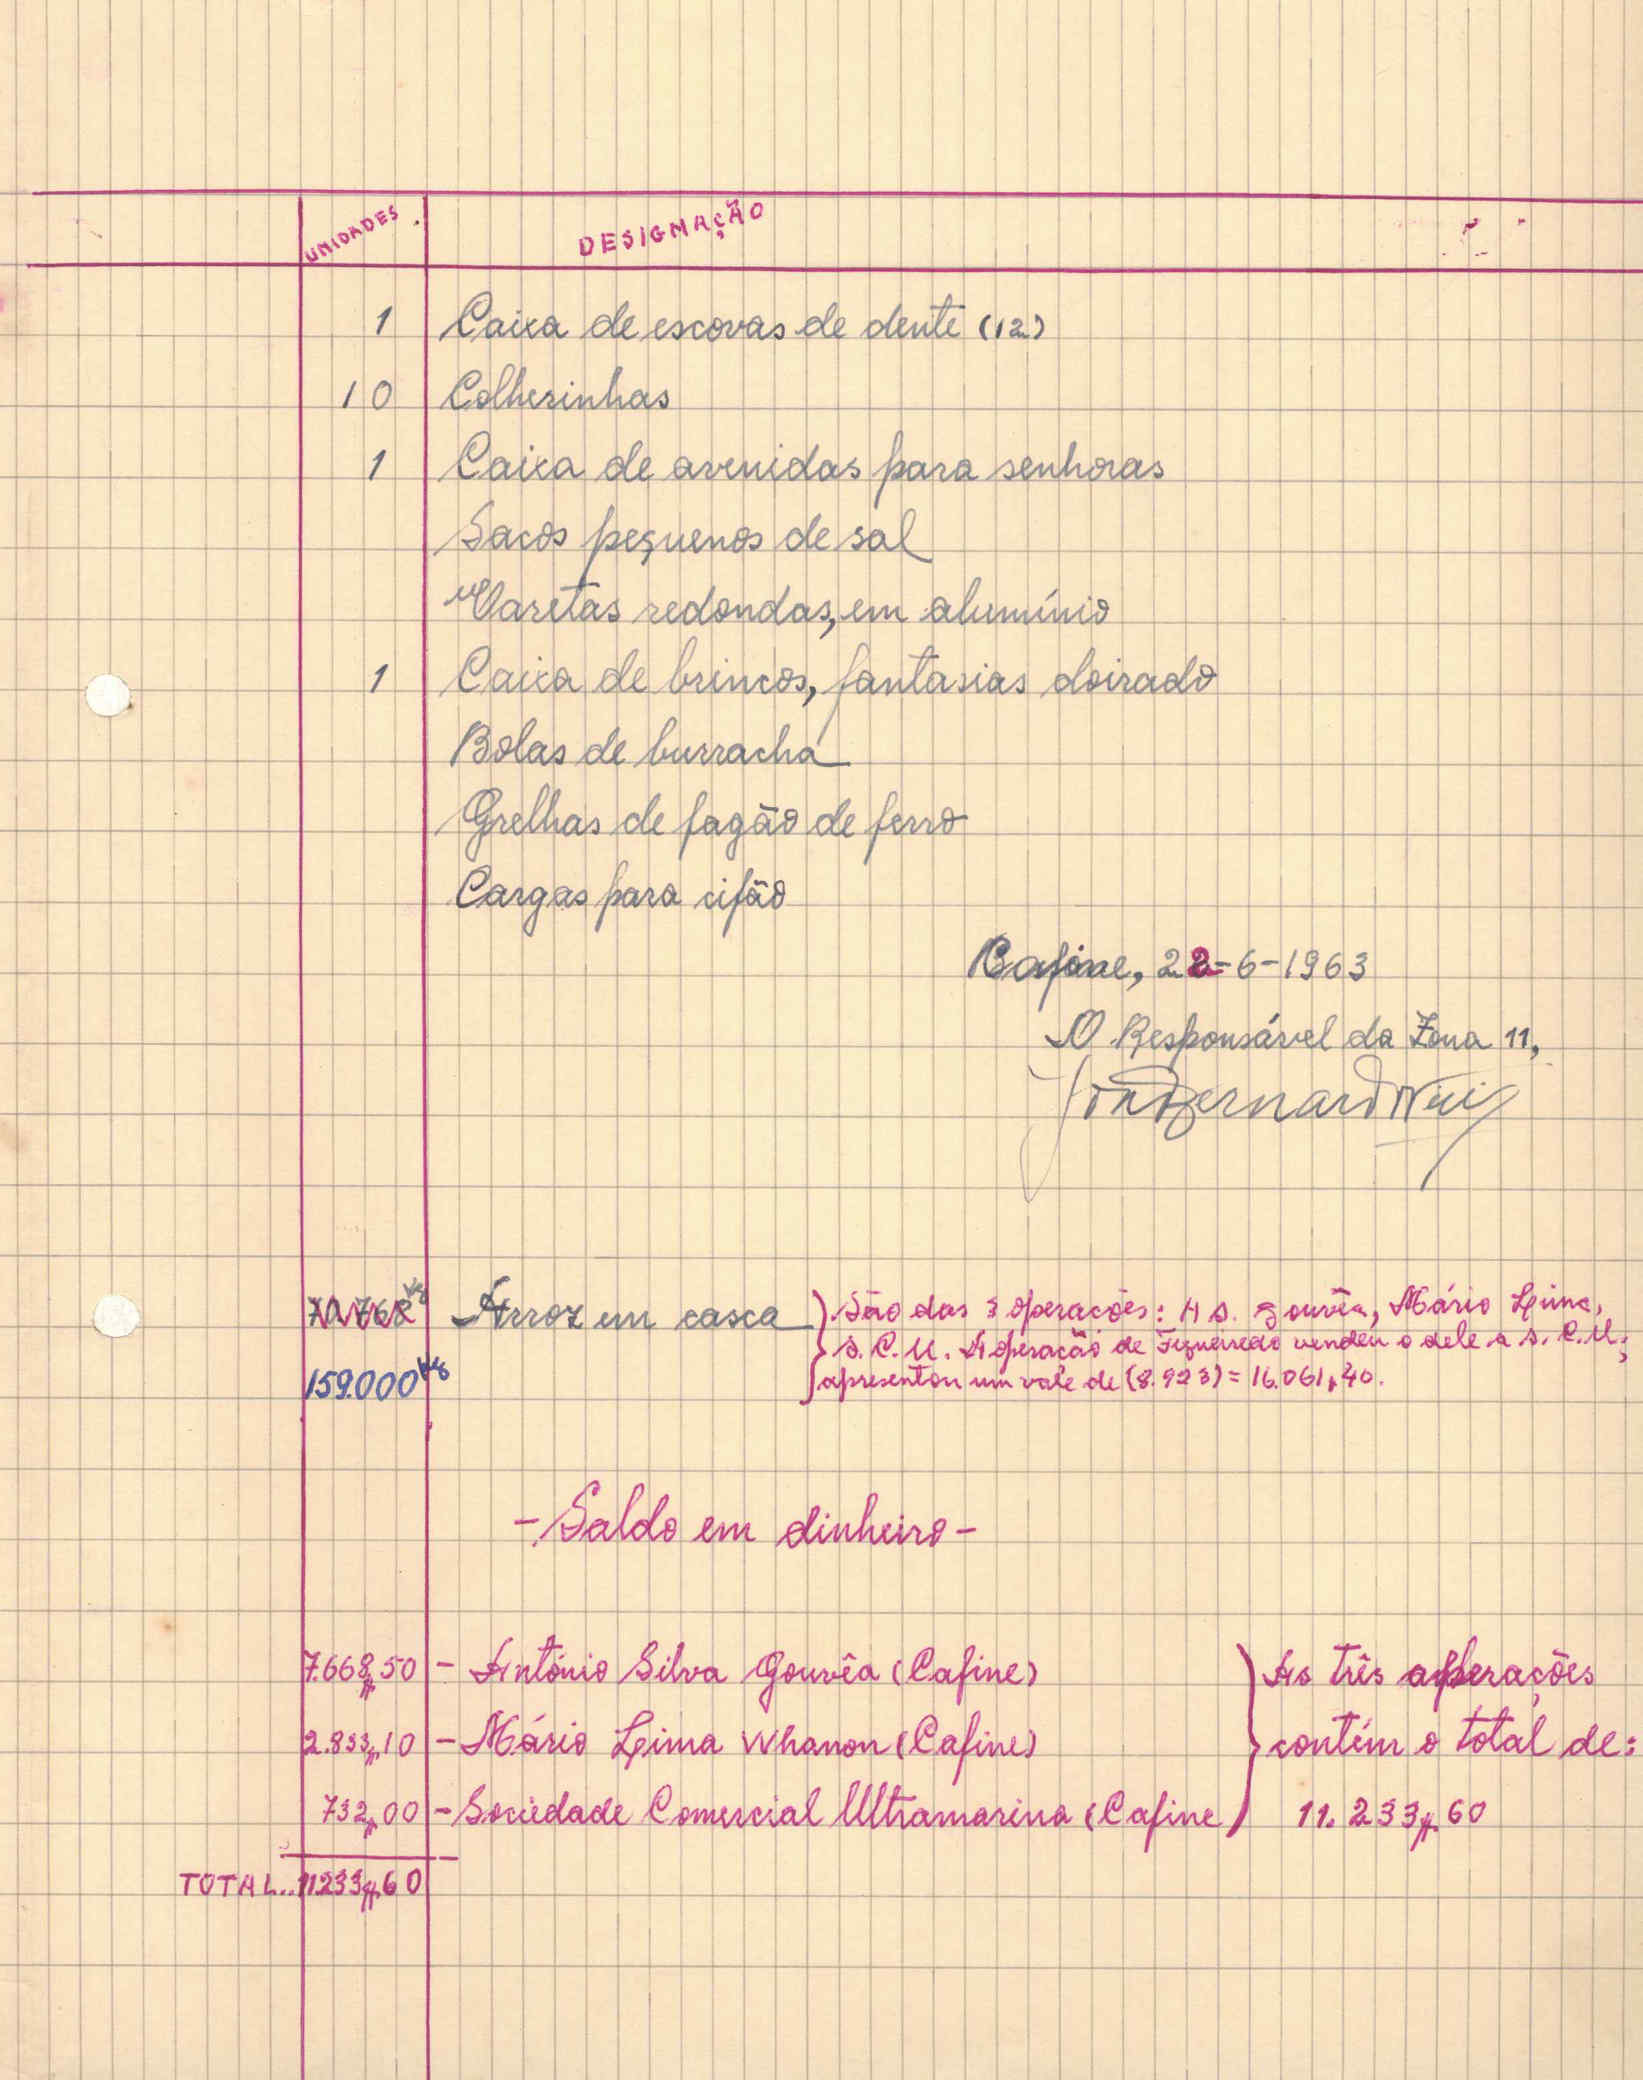 UNIDADES DESIGNAÇÃO
1 Caixa de escovas de dente (12)
10 Colherinhas
1 Caixa de avenidas para senhoras
Sacos pequenos de sal
Varetas redondas, em alumínio
1 Caixa de brincos, fantasias doirado
Bolas de burracha
Grelhas de fagão de ferro
Cargas para cifão
Cafine, 22-6-1963
O Responsável da Zona 11,
70.768 kg Arroz em casca } São das 3 operações: A S. Gouvêa, Mário Lima,
S.C.U. A operação de Figueiredo vendeu o dele a S.C.U.;
159.000 kg apresentou um vale de (8.923) = 16.061$40.
- Saldo em dinheiro -
7.668$50 - António Silva Gouvêa (Cafine) } As três operações
2.833$10 - Mário Lima Whanon (Cafine) contém o total de:
732$00 - Sociedade Comercial Ultramarina (Cafine) 11.233$60
TOTAL..11233$60